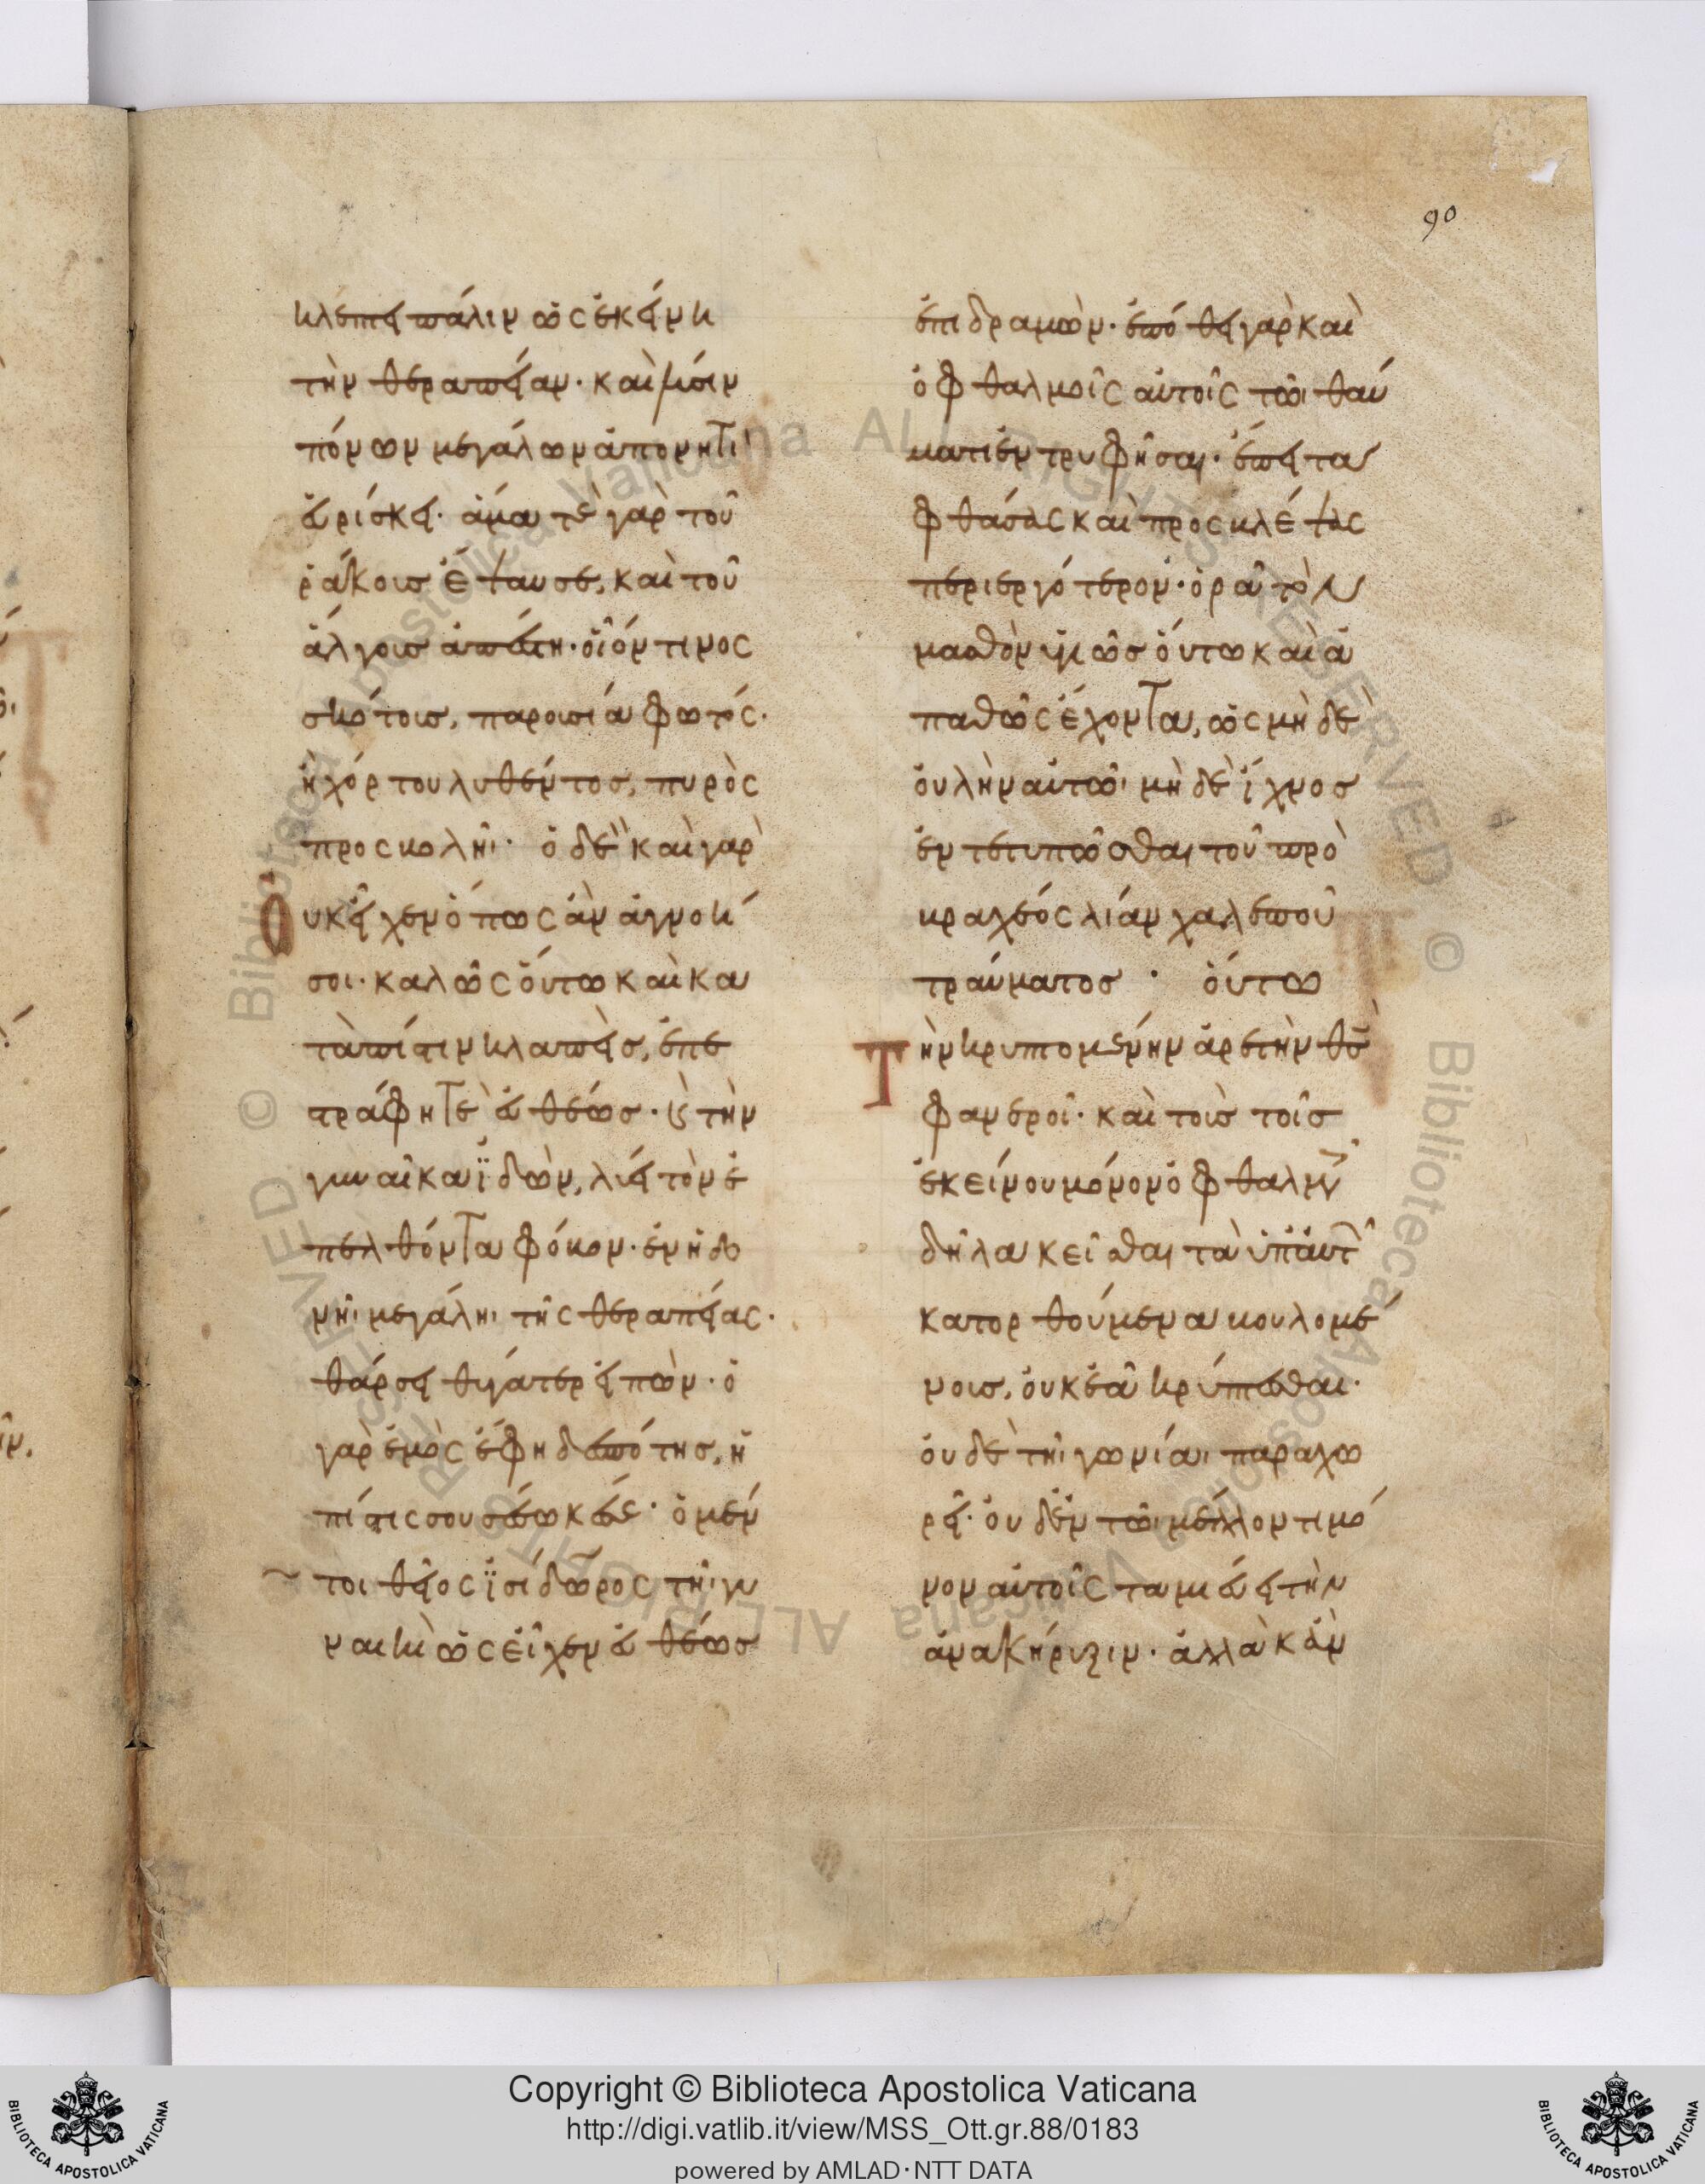 90
κλέπτει πάλιν ὡς ἐκείνη
τὴν θεραπείαν· καὶ λύσιν
πόνων μεγάλων ἀπονητὶ
εὑρίσκει· ἅμα τὲ γὰρ τοῦ
ῥάκους ἔψαυσε, καὶ τοῦ
ἄλγους ἀπέστη· οἷόν τινος
σκότους, παρουσία φωτός·
ἢ χόρτου λυθέντος, πυρὸς
προσβολῆι· ὁ δὲ καὶ γὰρ
οὐκ εἶχεν ὅπως ἂν ἀγνοή
σοι· καλῶς οὕτω καὶ κα
τὰ πίστιν κλαπεὶς, ἐπε
στράφητε εὐθέως· καὶ τὴν
γυναῖκα ἰδὼν, λύει τὸν ἐ
πελθόντα φόβον· ἐν ἡδο
νῆι μεγάληι τῆς θεραπείας·
θάρσει θύγατερ εἰπὼν· ὁ
γὰρ ἐμὸς ἔφη δεσπότης, ἡ
πίστις σου σέσωκέ σε· ὁ μέν
τοι θεῖος ἰσίδωρος τῆι γυ
ναικὶ ὡς εἶχεν εὐθέως
ἐπιδραμὼν· ἐπόθει γὰρ καὶ
ὀφθαλμοῖς αὐτοῖς τῶι θαύ
ματι ἐντρυφῆσαι· ἔπειτα
φθάσας καὶ προσβλέψας
περιεργότερον· ὁρᾶ τὸν
μασθὸν ὑγιῶς οὕτω καὶ ἀ
παθῶς ἔχοντα, ὡς μὴ δὲ
οὐλὴν αὐτῶι μὴ δὲ ἴχνος
ἐντετυπῶσθαι τοῦ πρὸ
βραχέος λίαν χαλεποῦ
τραύματος· οὕτω
τὴν κρυπτομένην ἀρετὴν θς
φανεροῖ· καὶ τοὺς τοῖς
ἐκείνου μόνον ὀφθαλμοῖς
δῆλα κεῖσθαι τὰ ὑπ αὐτῶν
κατορθούμενα βουλομέ
νους, οὐκ ἐᾶ κρύπτεσθαι·
οὐδὲ τῆι γωνίαι παραχω
ρεῖ· οὐδὲν τῶι μέλλοντι μό
νον αὐτοῖς ταμιεύει τὴν
ἀνακήρυξιν· ἀλλὰ κἀν
Copyright © Biblioteca Apostolica Vaticana
http://digi.vatlib.it/view/MSS_Ott.gr.88/0183
powered by AMLAD·NTT DATA
BIBLIOTECA APOSTOLICA VATICANA
BIBLIOTECA APOSTOLICA VATICANA